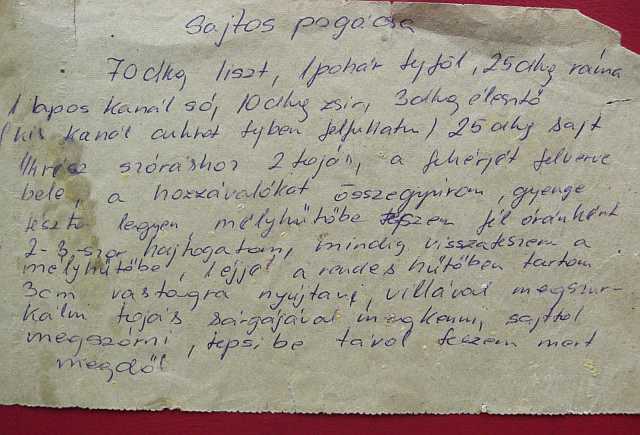 Sajtos pogácsa
70 dkg liszt, 1 pohár tejföl, 25 dkg ráma
1 lapos kanál só, 10 dkg zsír, 3 dkg élesztő
(kis kanál cukrot tejben felfuttatni) 25 dkg sajt
1/2 rész szóráshoz 2 tojás, a fehérjét felverve
bele, a hozzávalókat összegyúrom, gyenge
tészta legyen, mélyhűtőbe teszem fél óránként
2-3-szor hajtogatom, mindig visszateszem a
mélyhűtőbe, éjjel a rendes hűtőben tartom
3 cm vastagra nyújtani, villával megszur-
kálni tojás sárgájával megkenni, sajttal
megszórni, tepsibe távol teszem mert
megdől